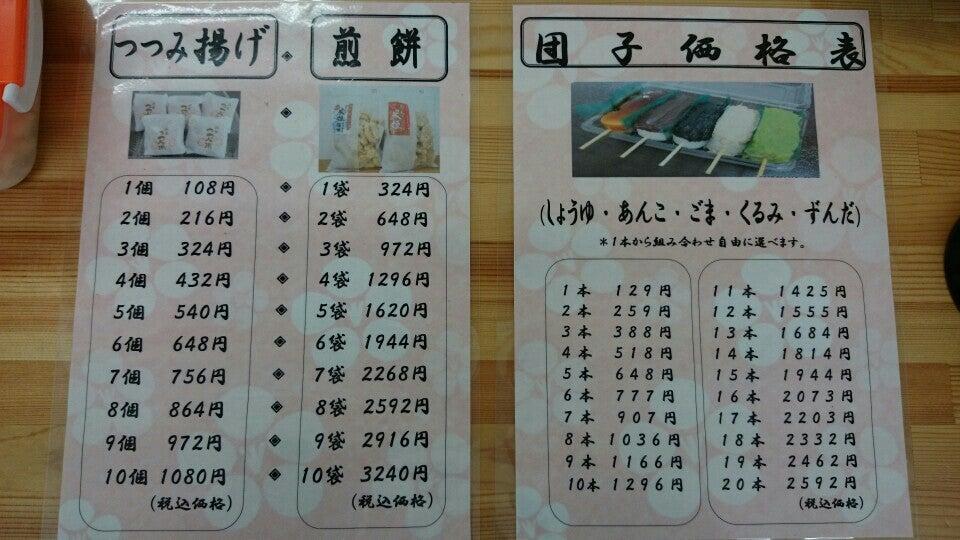 つつみ揚げ
1個 108円
2個 216円
3個 324円
4個 432円
5個 540円
6個 648円
7個 756円
8個 864円
9個 972円
10個 1080円
(税込価格)
煎餅
1袋 324円
2袋 648円
3袋 972円
4袋 1296円
5袋 1620円
6袋 1944円
7袋 2268円
8袋 2592円
9袋 2916円
10袋 3240円
(税込価格)
団子価格表
(しょうゆ・あんこ・ごま・くるみ・ずんだ)
*1本から組み合わせ自由に選べます。
1本 129円
2本 259円
3本 388円
4本 518円
5本 648円
6本 777円
7本 907円
8本 1036円
9本 1166円
10本 1296円
11本 1425円
12本 1555円
13本 1684円
14本 1814円
15本 1944円
16本 2073円
17本 2203円
18本 2332円
19本 2462円
20本 2592円
(税込価格)